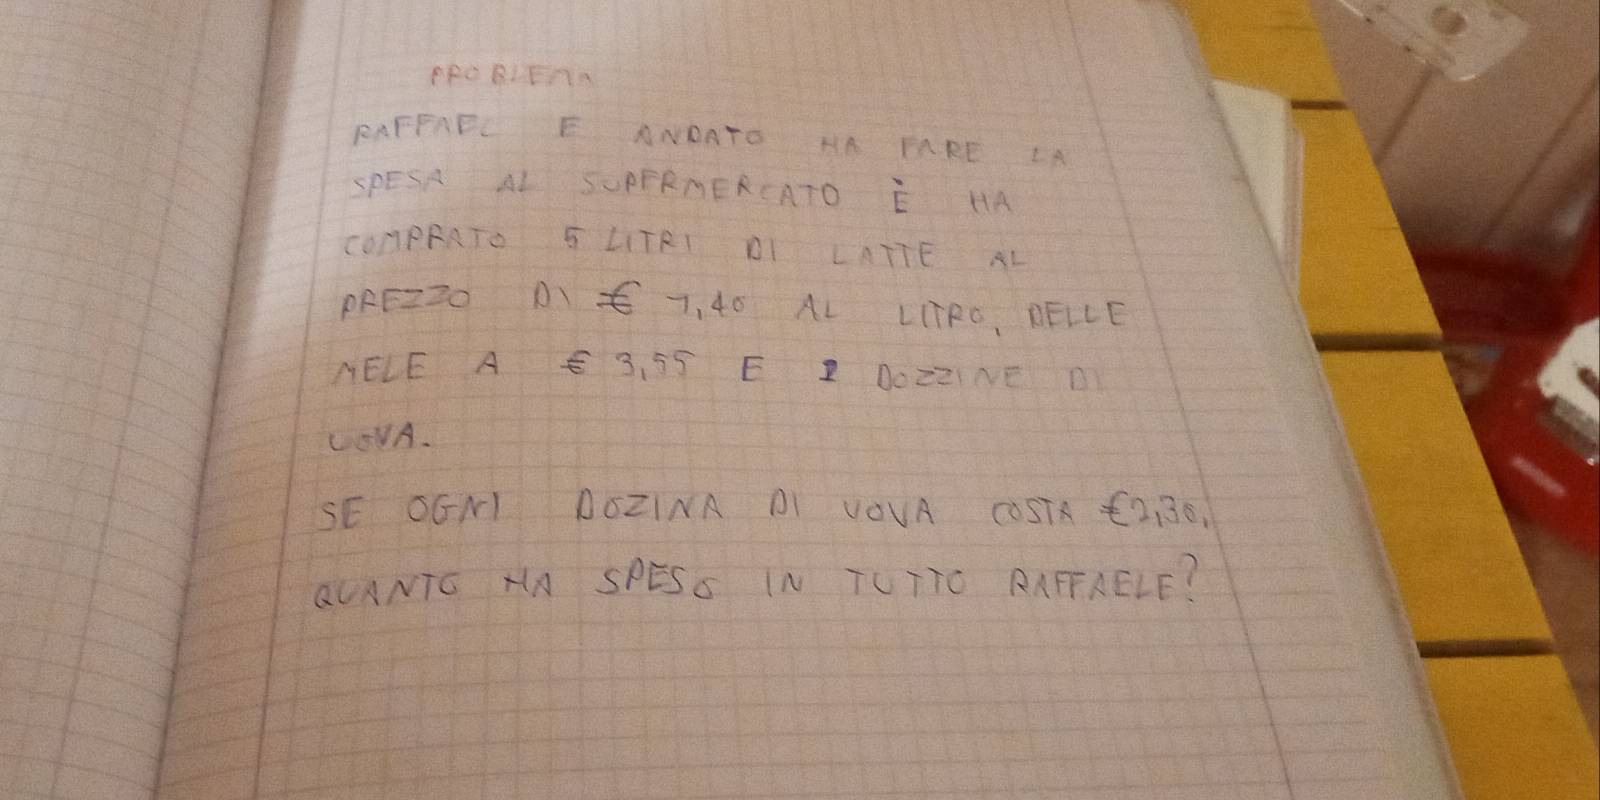 PROBLEMA
RAFFAEL E ANDATO HA FARE LA
SPESA AL SUPERMERCATO È HA
COMPRATO 5 LITRI DI LATTE AL
PREZZO DI € 1,40 AL LITRO, DELLE
MELE A € 3,55 E 2 DOZZINE DI
UOVA.
SE OGNI DOZINA DI UOVA COSTA €2,30,
QUANTO HA SPESO IN TUTTO RAFFAELE?